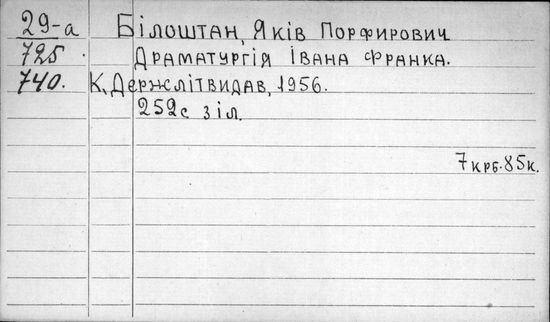 29-а Білоштан, Яків Порфирович
725 Драматургія Івана Франка.
740. К, Держлітвидав, 1956.
252с з іл.
7 крб. 85к.